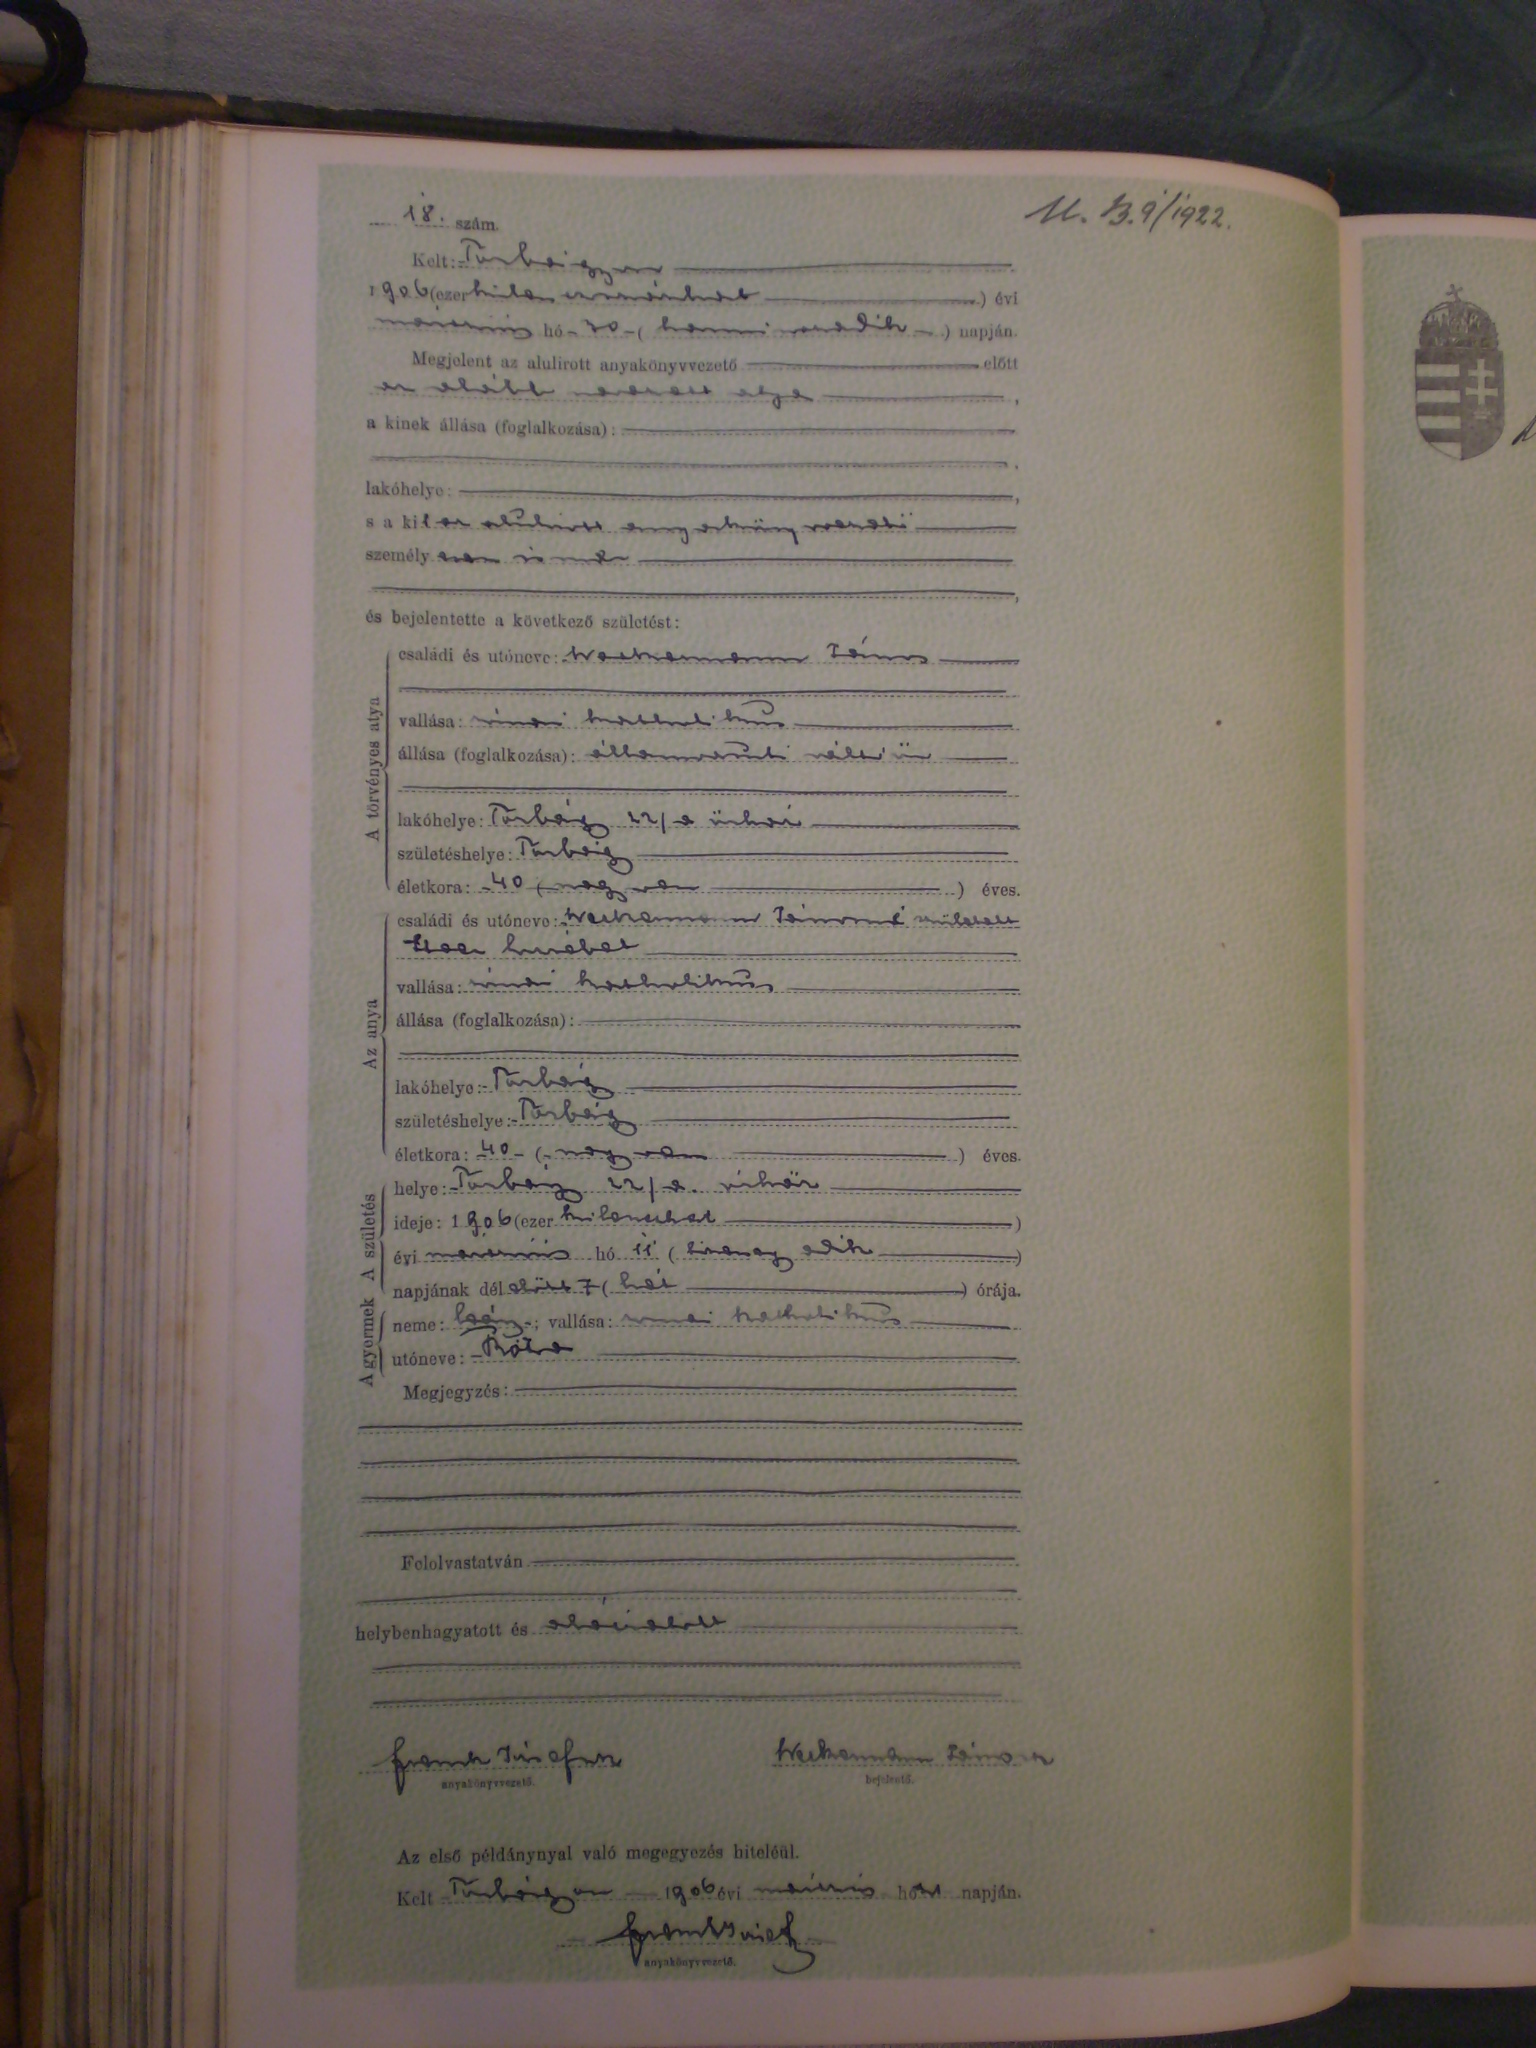 18. szám.
U. B. 9/1922.
Kelt: Torbágyon
1906 (ezerkilenczszázhat) évi
márczius hó 30 (harminczadik) napján.
Megjelent az alulirott anyakönyvvezető előtt
az alább nevezett atya,
a kinek állása (foglalkozása):
lakóhelye:
s a kit az alulirott anyakönyvvezető
személyesen ismer
és bejelentette a következő születést:
A törvényes atya
családi és utóneve: Weckermann János
vallása: római katholikus
állása (foglalkozása): államvasuti váltóőr
lakóhelye: Torbágy 22/a őrház
születéshelye: Torbágy
életkora: 40 (negyven) éves.
Az anya
családi és utóneve: Weckermann Jánosné született
Erzsébet
vallása: római katholikus
állása (foglalkozása):
lakóhelye: Torbágy
születéshelye: Torbágy
életkora: 40 (negyven) éves.
A születés
helye: Torbágy 22/a. őrház
ideje: 1906 (ezerkilenczszázhat)
évi márczius hó 11 (tizenegyedik)
napjának délelőtt 7 (hét) órája.
A gyermek
neme: leány; vallása: római katholikus
utóneve: Róza
Megjegyzés:
Felolvastatván
helybenhagyatott és aláiratott
anyakönyvvezető.
Weckermann János
bejelentő.
Az első példánynyal való megegyezés hiteléül.
Kelt Torbágyon 1906 évi márczius hó napján.
anyakönyvvezető.